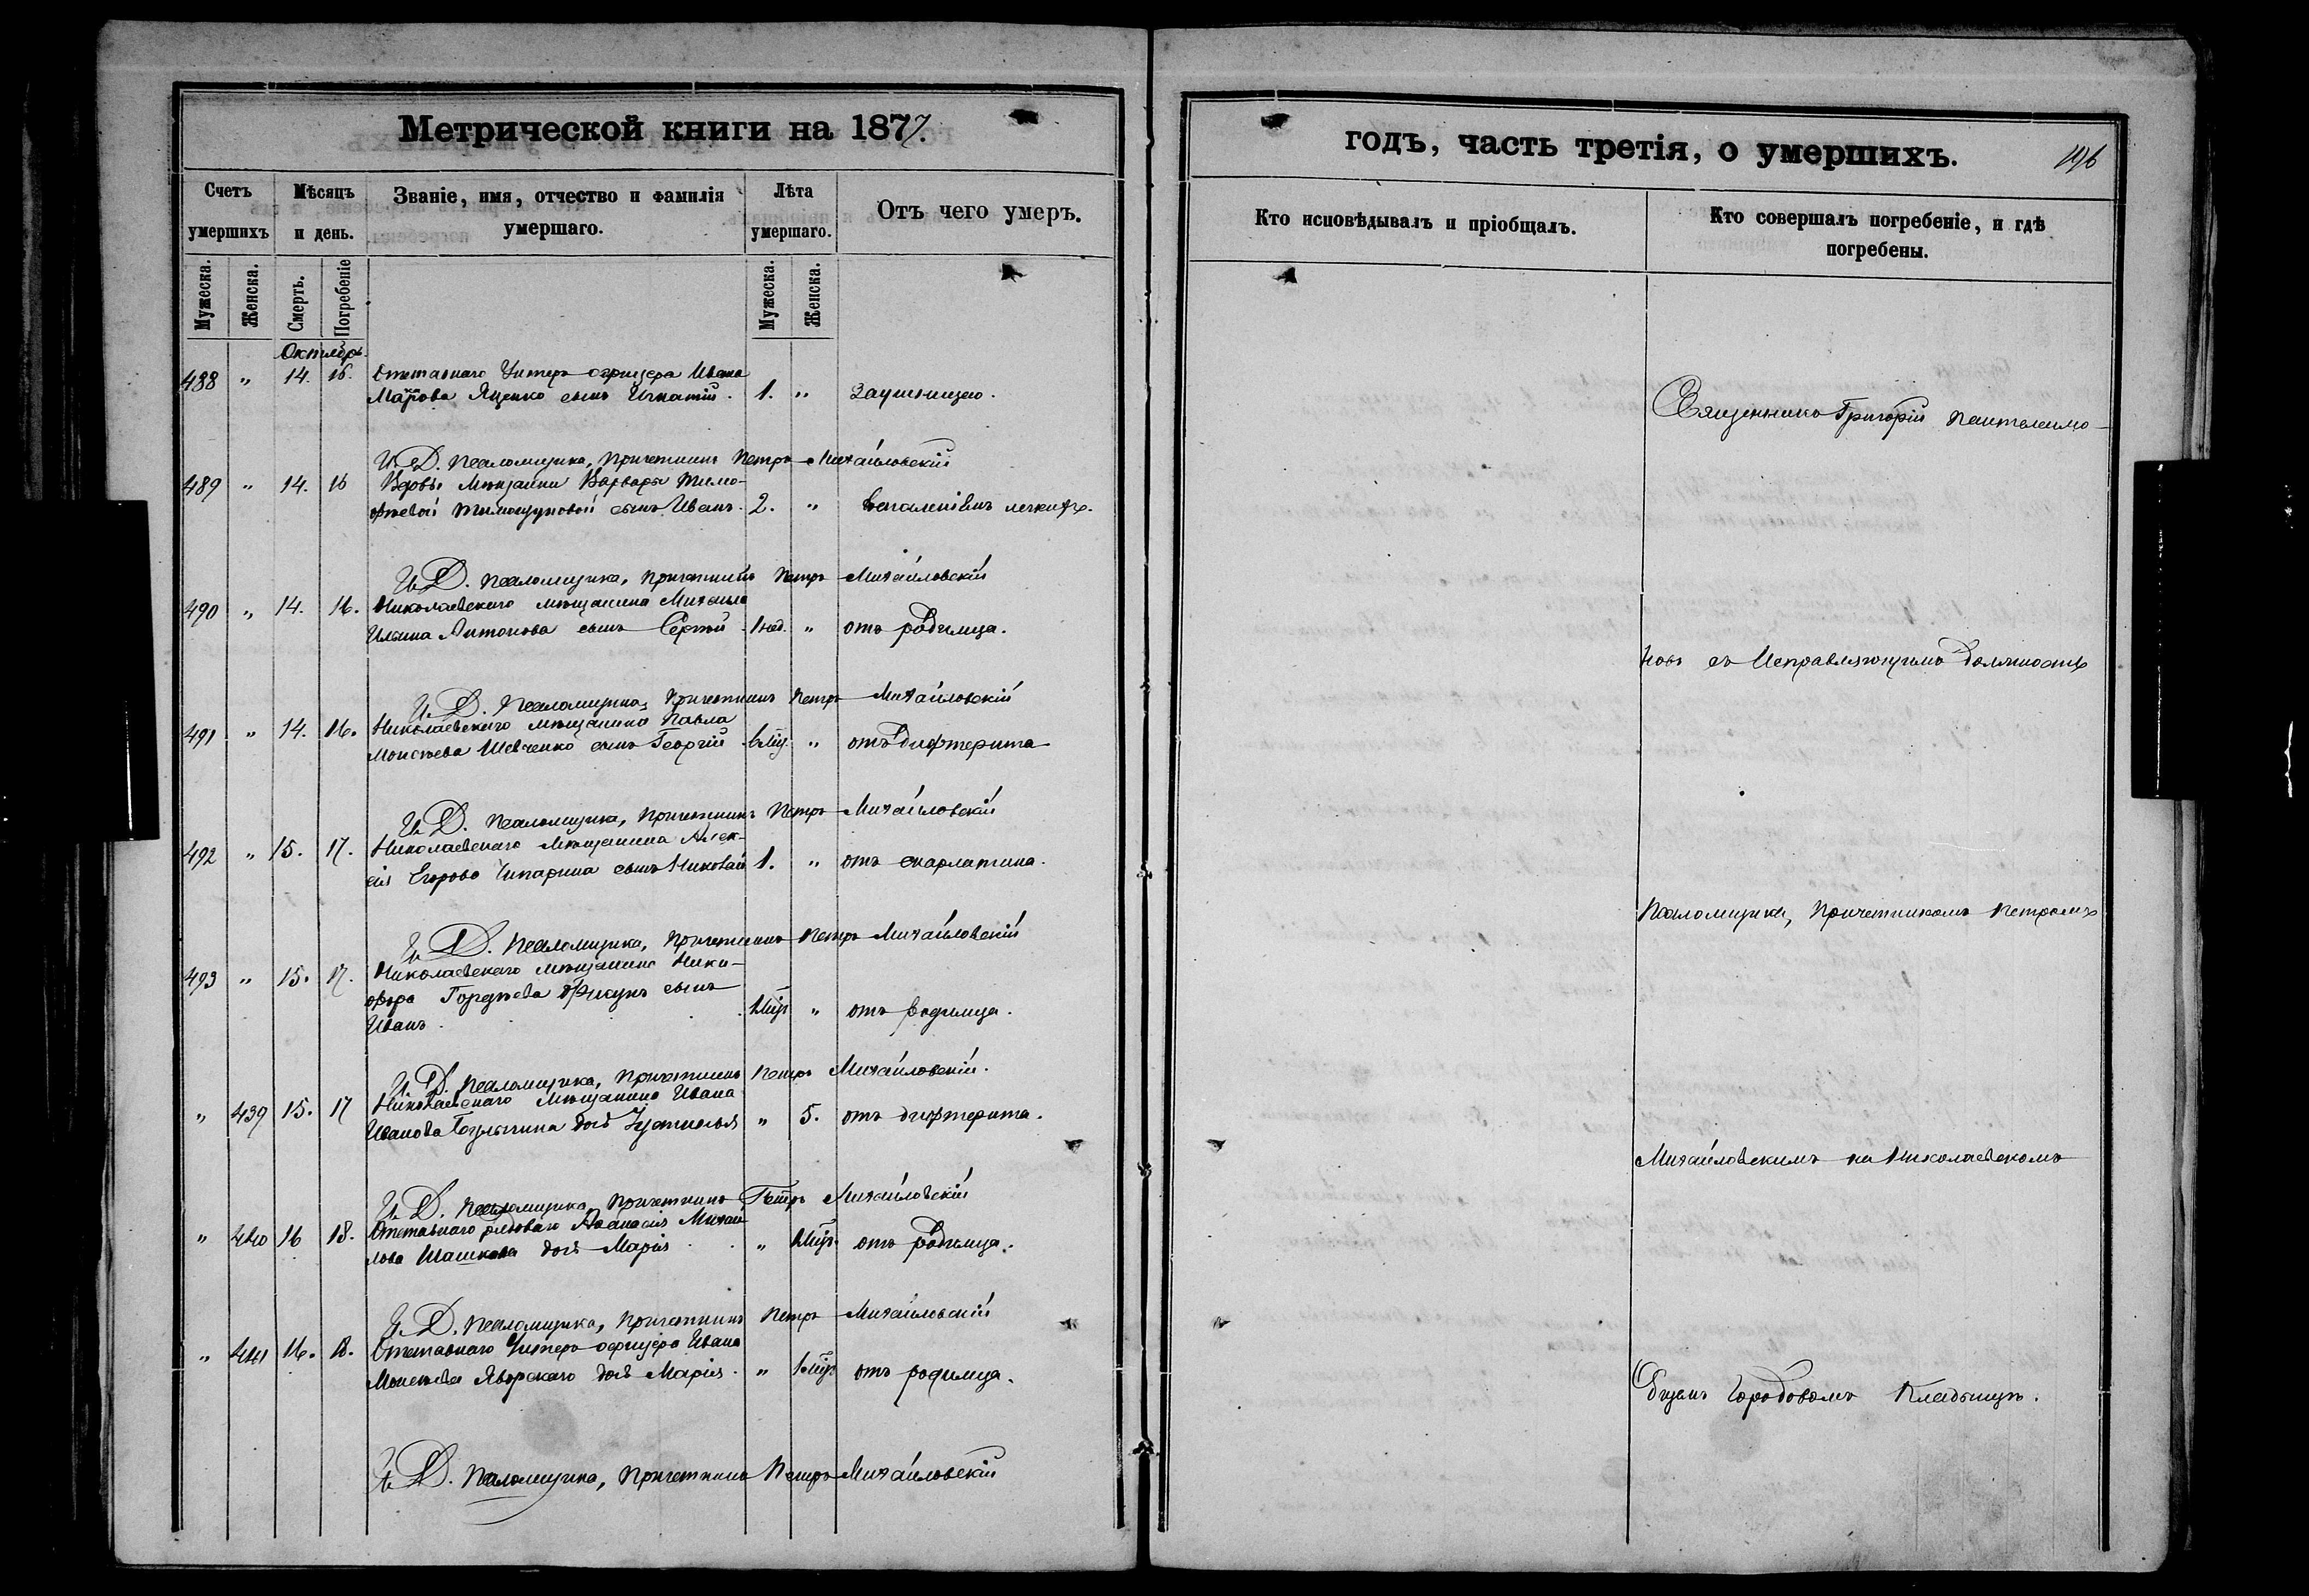 Метрической книги на 1877.
Счетъ умершихъ
Мѣсяцъ и день.
Званіе, имя, отчество и фамилія умершаго.
Лѣта умершаго.
Отъ чего умеръ.
Мужеска. Женска. Смерть. Погребеніе Мужеска. Женска.
Октябрь.
488 " 14. 16. Отставнаго Унтеръ офицера Ивана
Яценко сынъ Игнатій. 1. " заушницею.
И. Д. Псаломщика, Причетникъ Петръ Михайловскій
489 " 14. 16 Вдовы Мѣщанки Варвары Тимо-
фѣевой сынъ Иванъ. 2. " воспаленіемъ легкихъ.
И. Д. Псаломщика, Причетникъ Петръ Михайловскій
490 " 14. 16. Николаевскаго мѣщанина Михаила
Ильина Антонова сынъ Сергѣй 1 нед. " отъ родимца.
И. Д. Псаломщика, Причетникъ Петръ Михайловскій
491 " 14. 16. Николаевскаго мѣщанина Павла
Моисѣева Шевченко сынъ Георгій 6 мѣц. " отъ дифтерита
И. Д. Псаломщика, Причетникъ Петръ Михайловскій
492 " 15. 17. Николаевскаго Мѣщанина Алек-
сія Егорова сынъ Николай 1. " отъ скарлатина.
И. Д. Псаломщика, Причетникъ Петръ Михайловскій
493 " 15. 17. Николаевскаго мѣщанина Ники-
фора Гордѣева сынъ
Иванъ. 1 мѣц. " отъ родимца.
И. Д. Псаломщика, Причетникъ Петръ Михайловскій.
" 439 15. 17 Николаевскаго Мѣщанина Ивана
Иванова дочь " 5. отъ дифтерита.
И. Д. Псаломщика, Причетникъ Петръ Михайловскій
" 440 16 18. Отставнаго рядоваго Афанасія Михай
лова Шашкова дочь Марія " 1 мѣц. отъ родимца.
И. Д. Псаломщика, Причетникъ Петръ Михайловскій
" 441 16. 18. Отставнаго Унтеръ офицера Ивана
Моисѣева Яворскаго дочь Марія. " 1 мѣц. отъ родимца.
И. Д. Псаломщика, Причетникъ Петръ Михайловскій
годъ, часть третія, о умершихъ.
196
Кто исповѣдывалъ и пріобщалъ.
Кто совершалъ погребеніе, и гдѣ погребены.
Священникъ Григорій Пантелеимо-
новъ съ Исправляющимъ должность
Псаломщика, Причетникомъ Петромъ
Михайловскимъ на Николаевскомъ
Общемъ Городовомъ Кладбищѣ.